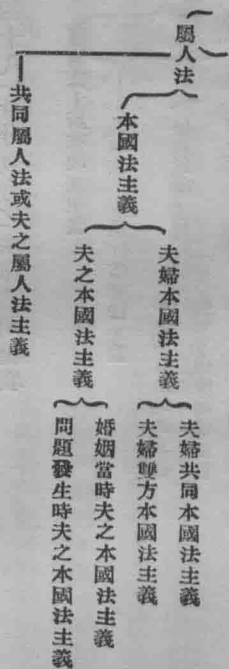 屬人法
本國法主義
夫婦本國法主義
夫婦共同本國法主義
夫婦雙方本國法主義
夫之本國法主義
婚姻當時夫之本國法主義
問題發生時夫之本國法主義
共同屬人法或夫之屬人法主義